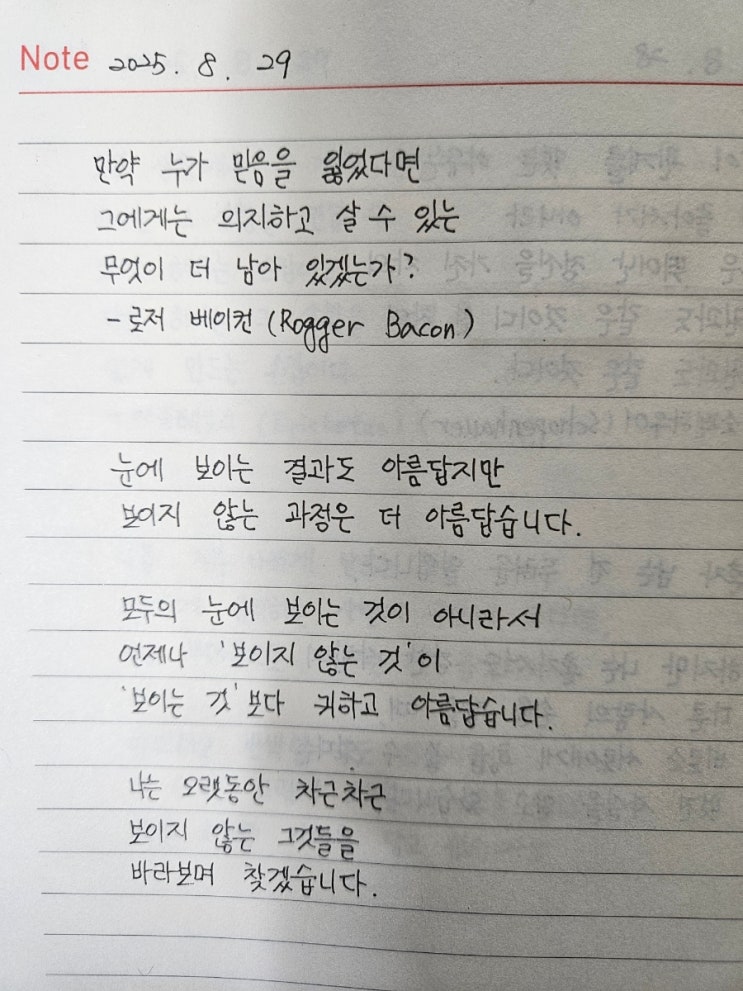 Note 2025. 8. 29
만약 누가 믿음을 잃었다면
그에게는 의지하고 살 수 있는
무엇이 더 남아 있겠는가?
- 로저 베이컨 (Rogger Bacon)
눈에 보이는 결과도 아름답지만
보이지 않는 과정은 더 아름답습니다.
모두의 눈에 보이는 것이 아니라서
언제나 '보이지 않는 것'이
'보이는 것'보다 귀하고 아름답습니다.
나는 오랫동안 차근차근
보이지 않는 그것들을
바라보며 찾겠습니다.